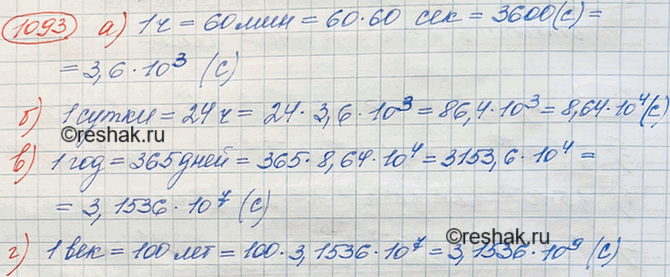 1093 а) 1ч = 60мин = 60·60 сек = 3600(с) =
= 3,6·10³ (с)
б) 1сутки = 24ч = 24·3,6·10³ = 86,4·10³ = 8,64·10⁴(с)
©reshak.ru
в) 1год = 365дней = 365·8,64·10⁴ = 3153,6·10⁴ =
= 3,1536·10⁷ (с)
©reshak.ru
г) 1век = 100лет = 100·3,1536·10⁷ = 3,1536·10⁹ (с)
©reshak.ru